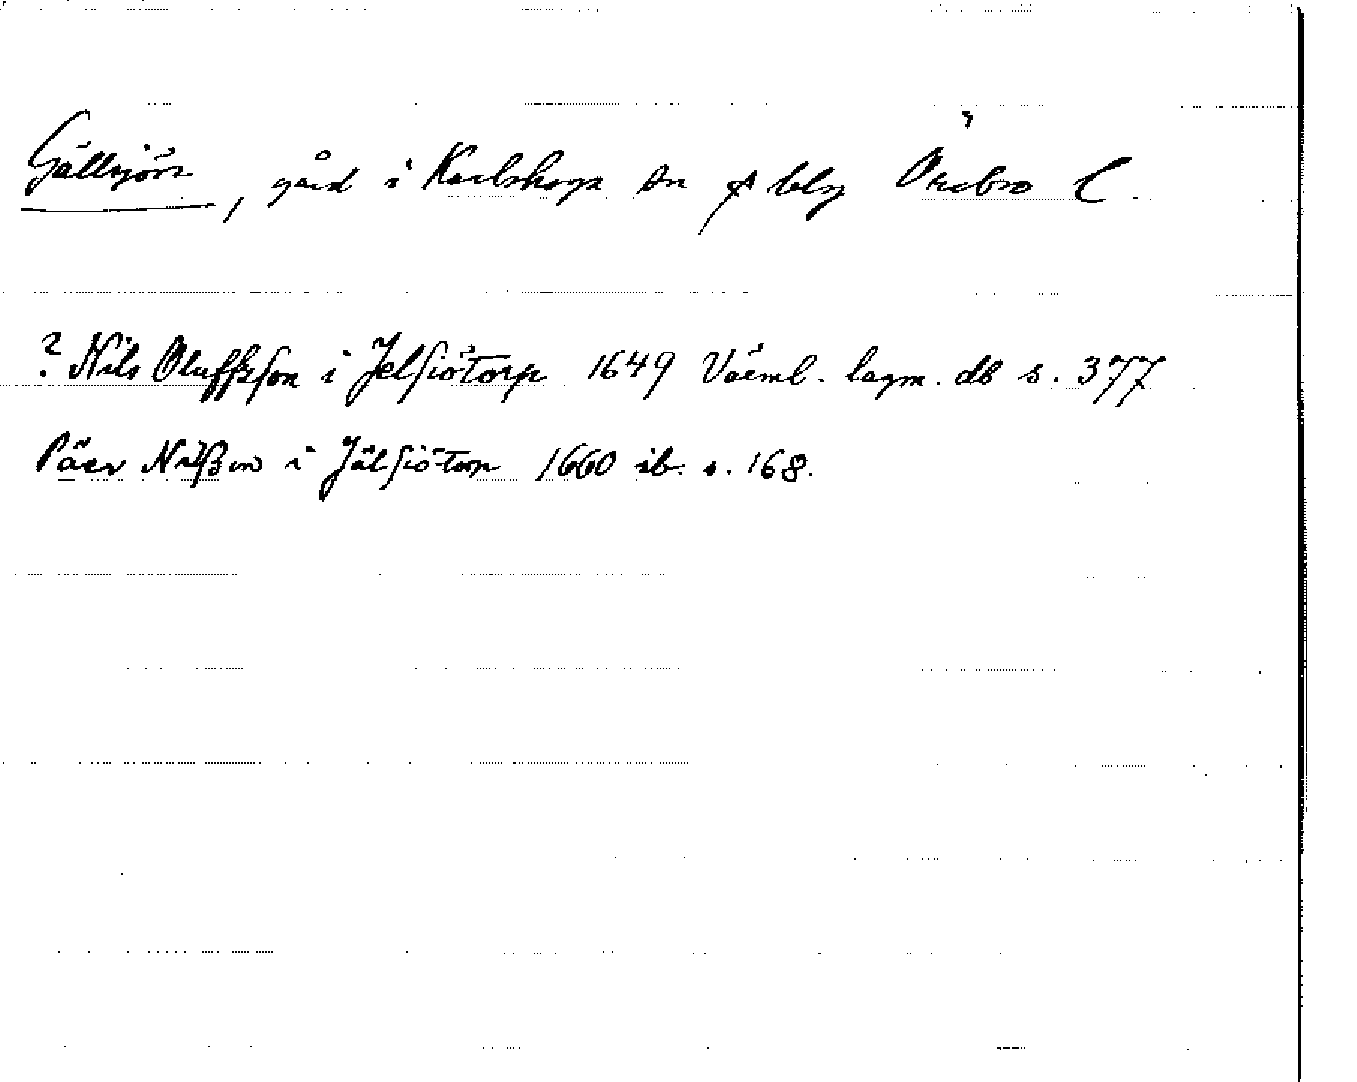 Gällsjön, gård i Karlskoga sn o blg Örebro l.
? Nils Oluffsson i Jelsiötorp 1649 Värml. lagm. db s. 377
Päer Nilßon i Jälsiötorp 1660 ib. s. 168.